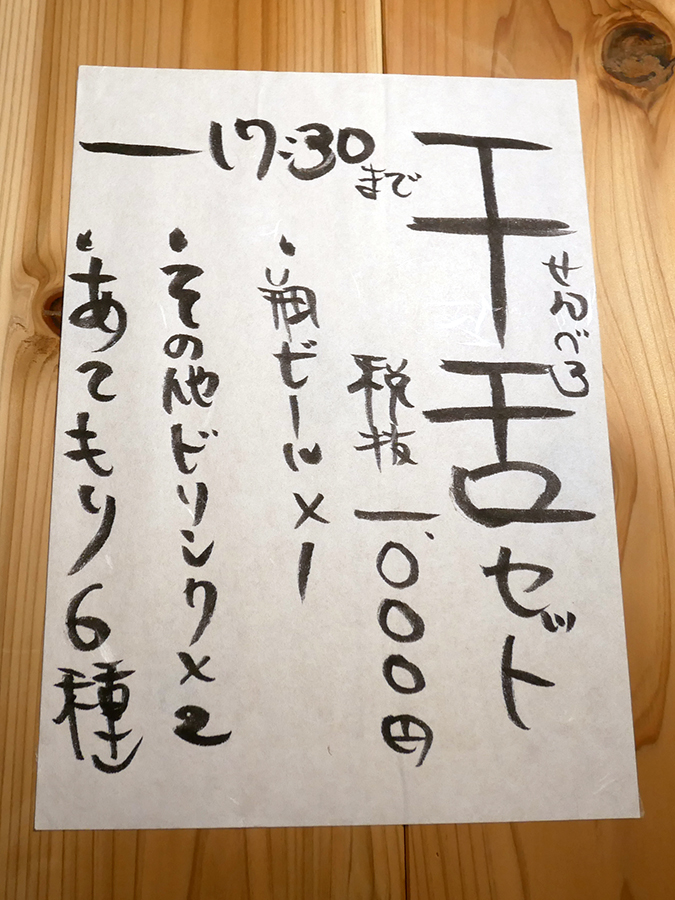 千舌セット
せんべろ
—17:30まで
税抜一、000円
・瓶ビール×1
・その他ドリンク×2
・あてもり6種